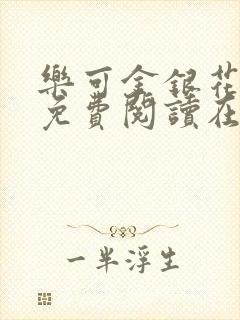 樂可金銀花
免費閱讀在
一半浮生